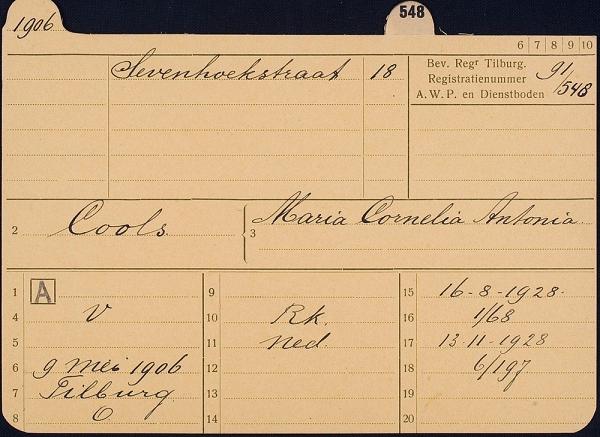 1906
548
6 7 8 9 10
Sevenhoekstraat 18
Bev. Regr Tilburg.
Registratienummer
A.W.P. en Dienstboden
91/548
2 Cools
3 Maria Cornelia Antonia
1 A
4 V
5
6 9 mei 1906
7 Tilburg
8 O
9
10 Rk.
11 ned.
12
13
14
15 16-8-1928.
16 1/68
17 13-11-1928
18 6/197
19
20